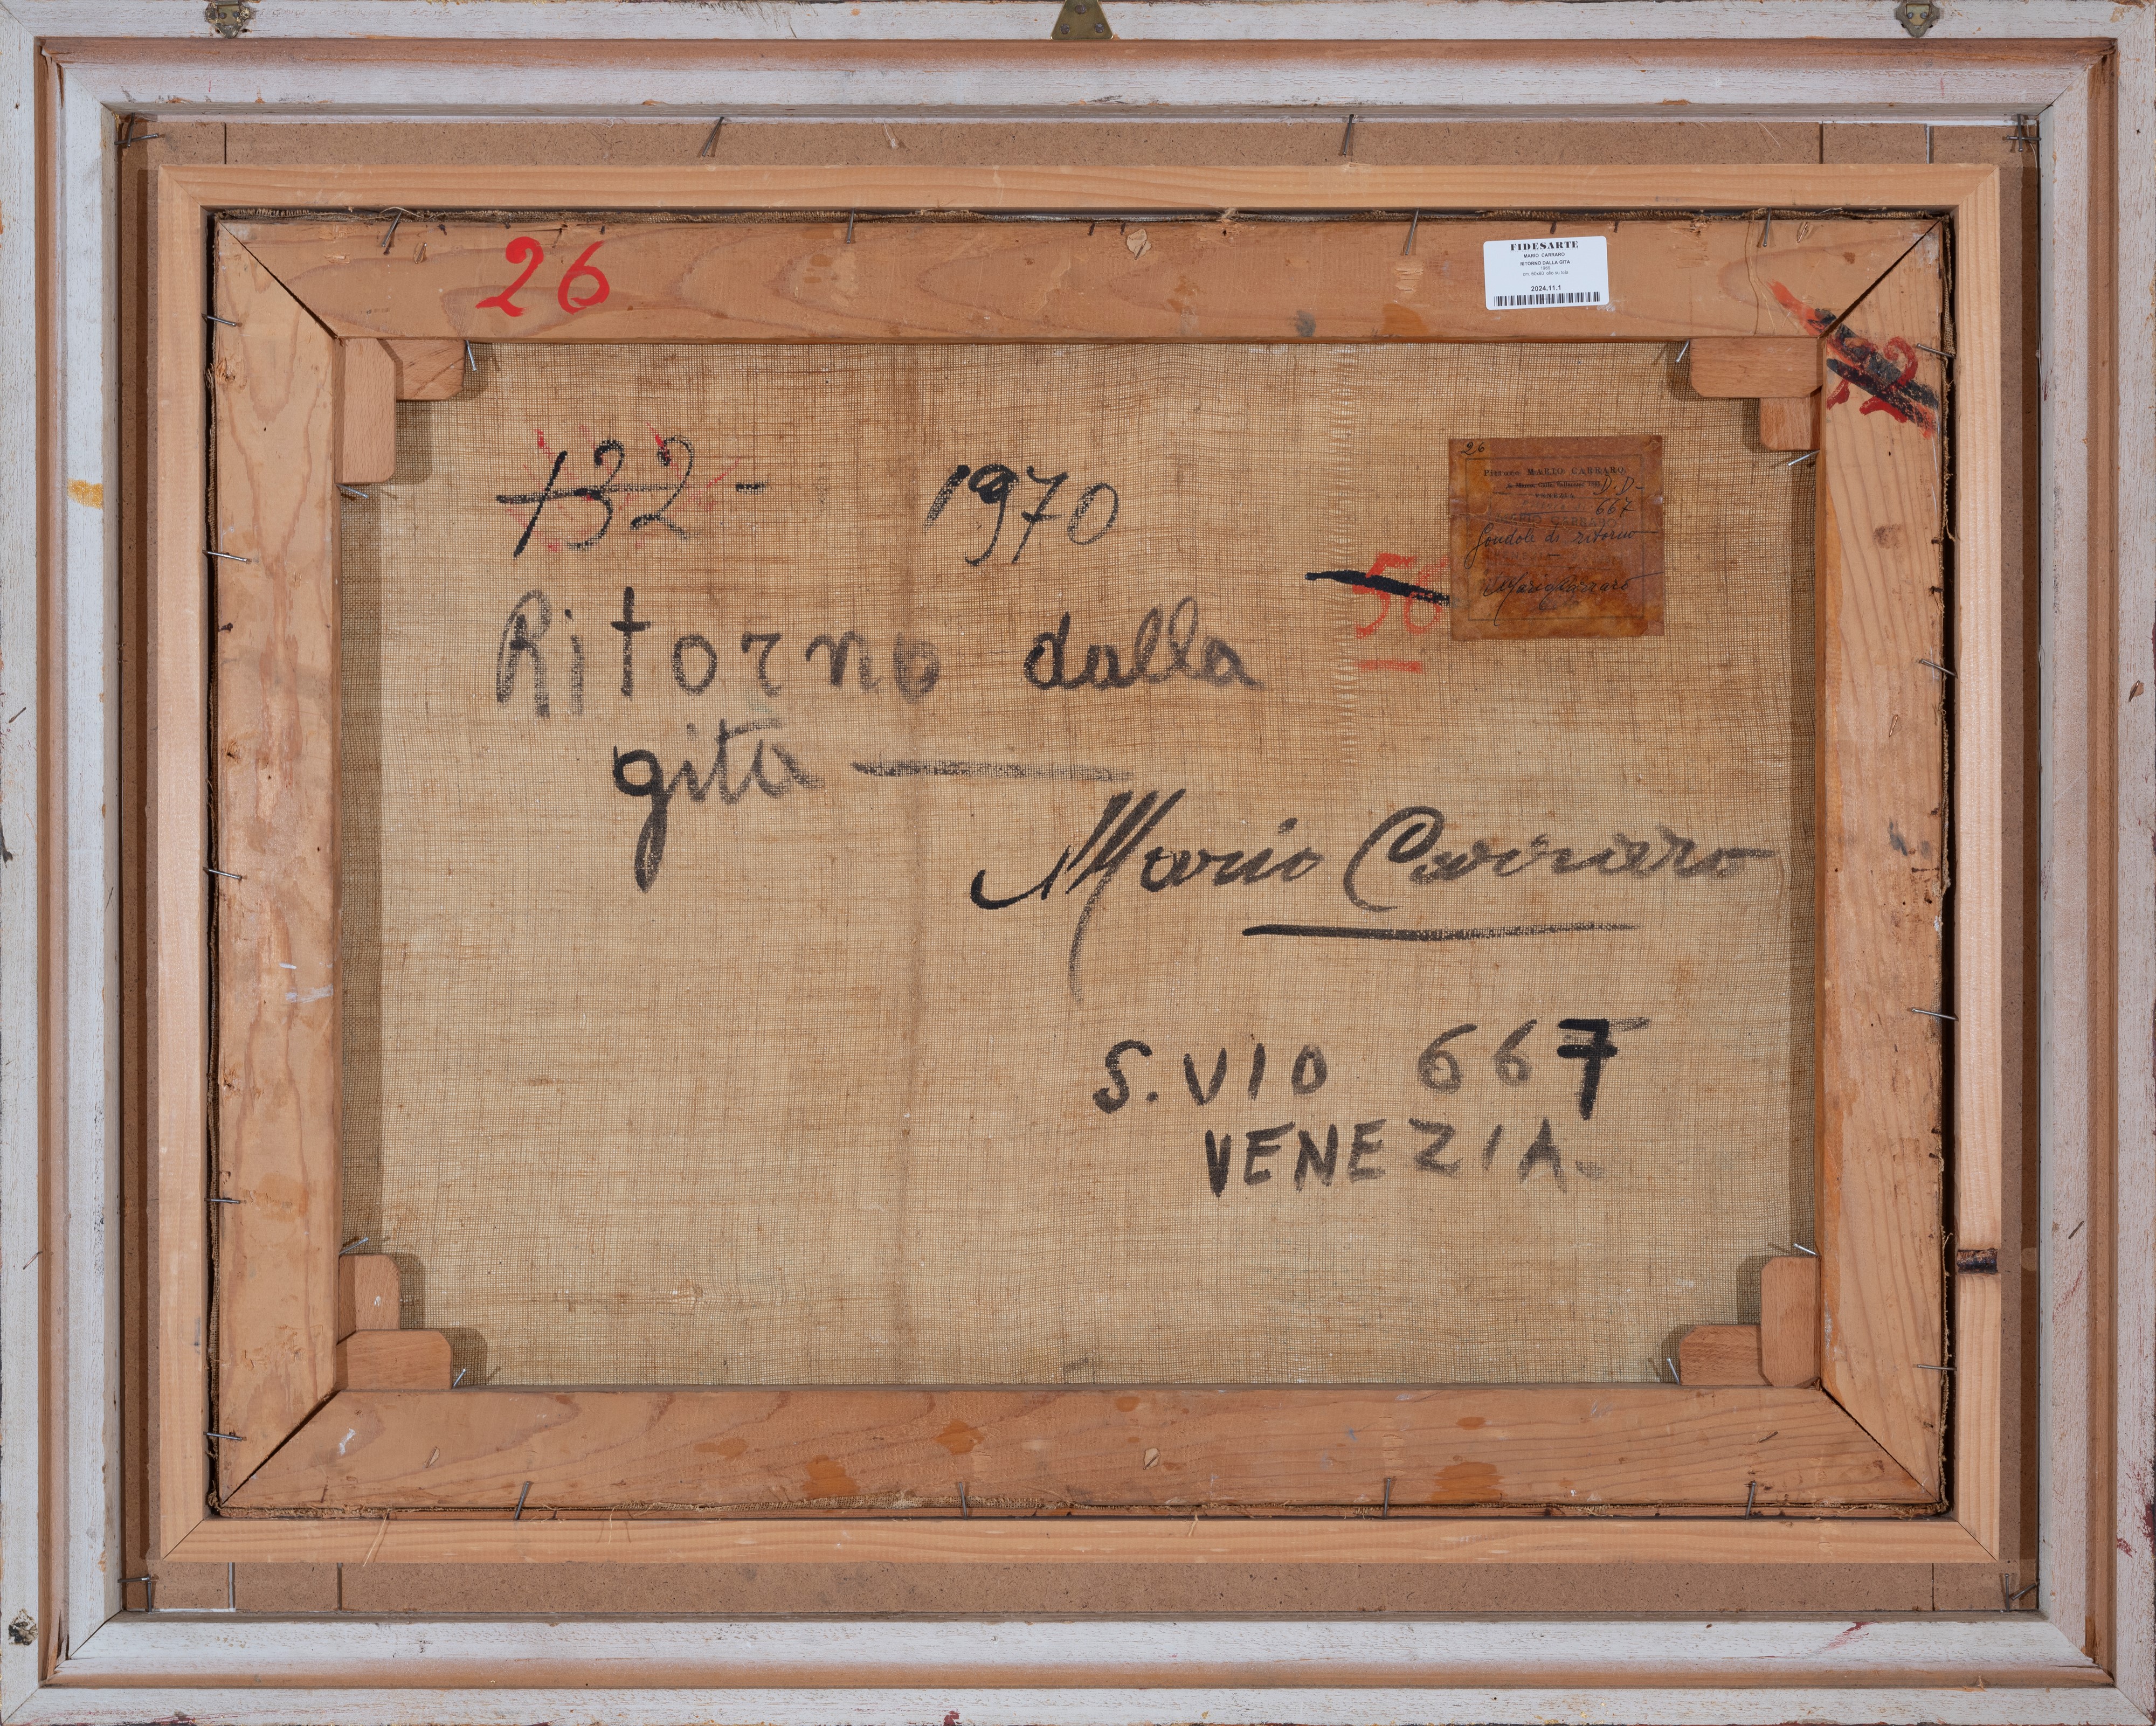 26
FIDESARTE
MARIO CARRARO
RITORNO DALLA GITA
2024.11.1
132 - 1970
Ritorno dalla
gita
Mario Carraro
S. VIO 667
VENEZIA.
56
26
Pittore MARIO CARRARO
D.D-
VENEZIA
667
Gondole di ritorno
Mario Carraro